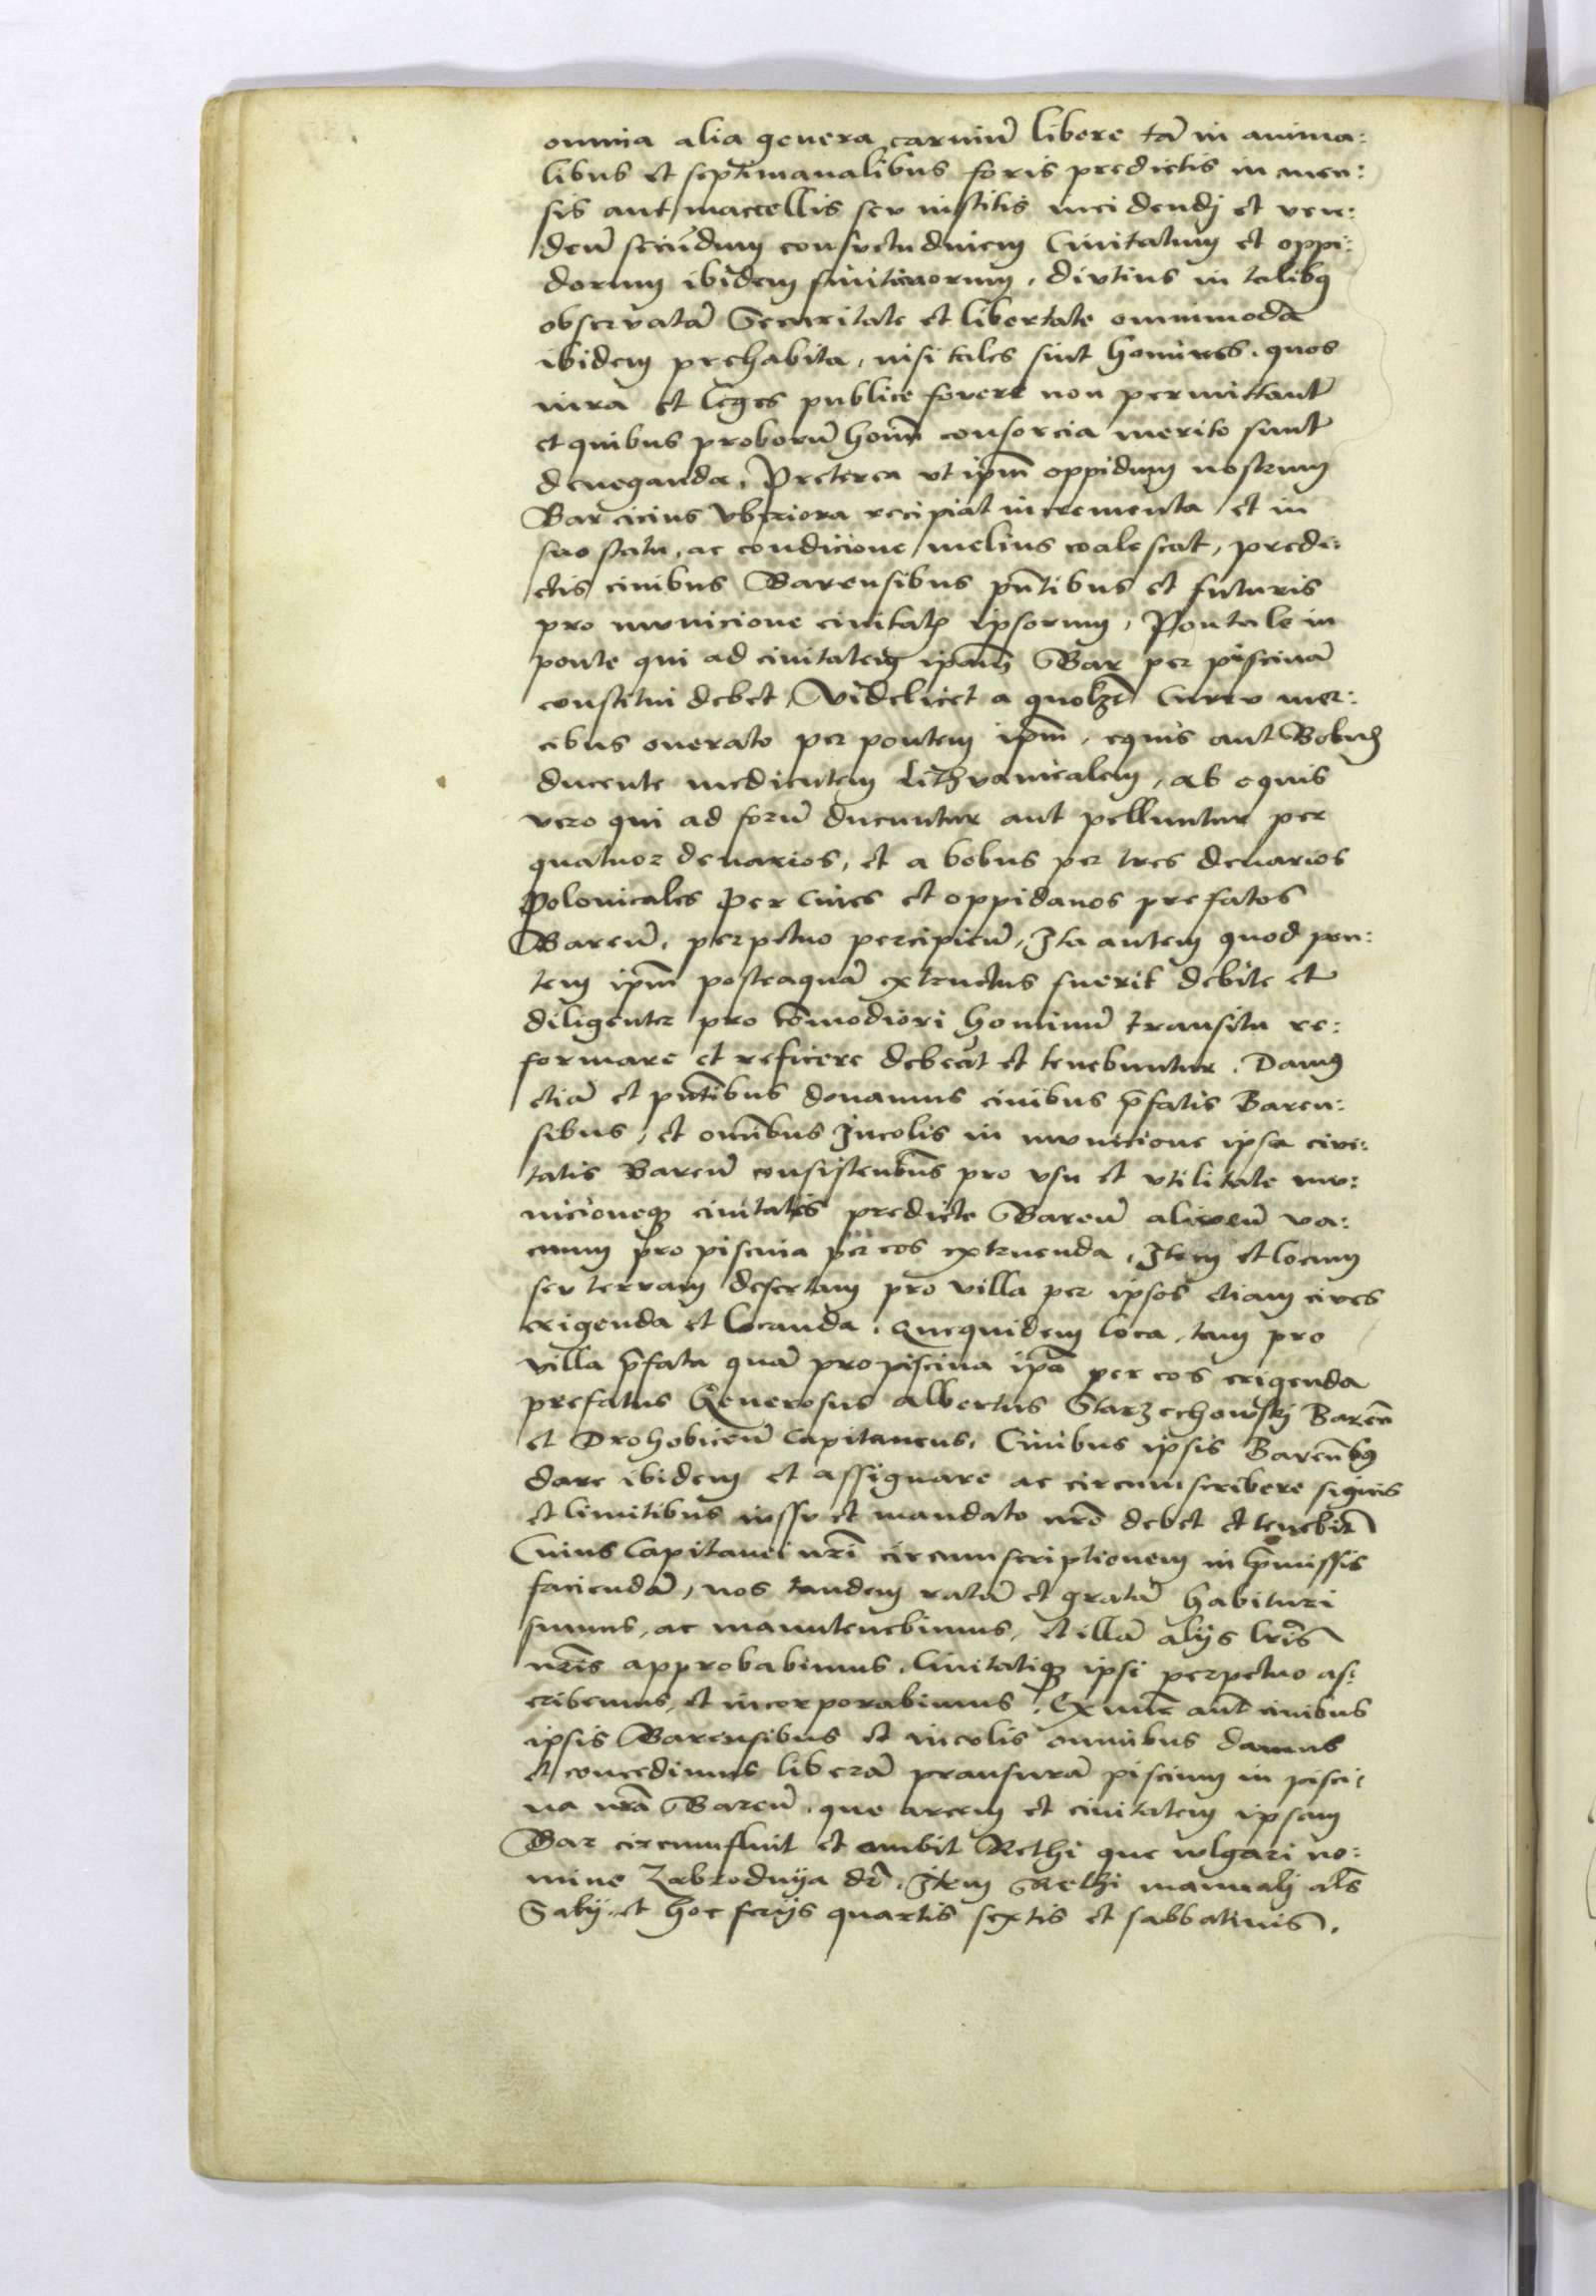 omnia alia genera carniũ libere tã in anima:
libus et septimanalibus foris predictis in men:
sis aut maccellis seu institis incidendj et ven:
deñ secũdum consuetudinem Civitatum et oppi:
dorum ibidem finitimorum, diutius in talibꝫ
observatã Securitate et libertate omnimodã
ibidem prehabita, nisi tales sint homines, quos
iura et leges publice fovere non permittant
et quibus proborũ homĩ consorcia merito sunt
deneganda. Preterea ut ipm̃ oppidum nostrum
Bar cicius vberiora recipiat incrementa et in
suo statu ac condicione melius coalescat, predi:
ctis civibus Barensibus pñtibus et futuris
pro municione civitatꝭ ipsorum, Pontale in
ponte qui ad civitatem ipam̃ Bar per piscinã
constitui debet, Videlicet a quolꝫt Curru mer:
cibus onerato per pontem ipm̃, equis aut Bobuꝫ
ducente medientem Lithvanicalem, ab equis
vero qui ad forũ ducuntur aut pelluntur per
quatuor denarios, et a bobus per tres denarios
Polonicales per Cives et oppidanos prefatos
Bareñ. perpetuo percipieñ, Ita autem quod pon:
tem ipm̃ posteaquã extructus fuerit debite et
diligenter pro cõmodiori hominũ transitu re:
formare et reficere debeãt et tenebuntur. Damꝫ
etiã et pñtibus donamus civibus p̃fatis Baren:
sibus, et omñbus Incolis in municione ipsa civi:
tatis Bareñ consistentibus pro vsu et vtilitate mu:
nicioneqꝫ civitatis predicte Bareñ alveũ va:
cuum pro piscina per eos extruenda, Item et locum
seu terram desertam pro villa per ipsos etiam cives
erigenda et locanda. Quequidem loca, tam pro
villa p̃fata quã pro piscina ipã per eos erigenda
prefatus Generosus Albertus Starzechowskj Bareñ
et Drohobiceñ Capitaneus, Civibus ipsis Bareñbꝫ
dare ibidem et assignare ac circumscribere signis
et limitibus iussu et mandato nr̃o debet et tenebit̃
Cuius Capitanei nr̃i circumscriptionem in p̃missis
faciendã, nos tandem ratã et gratã habituri
sumus, ac manutenebimus, et illã alijs lr̃is
nr̃is approbabimus, Civitatiqꝫ ipsi perpetuo as:
cribemus, et incorporabimus. Ex nunc aut̃ civibus
ipsis Barensibus et incolis omnibus damus
et concedimus liberã pransurã piscium in pisci:
na nrã Bareñ, que arcem et civitatem ipsam
Bar circumfluit et ambit Rethi que vulgari no:
mine Zabrodnya dr̃. Item Rethi manualj als̃
Saky, et hoc ferijs quartis sextis et sabbatinis.